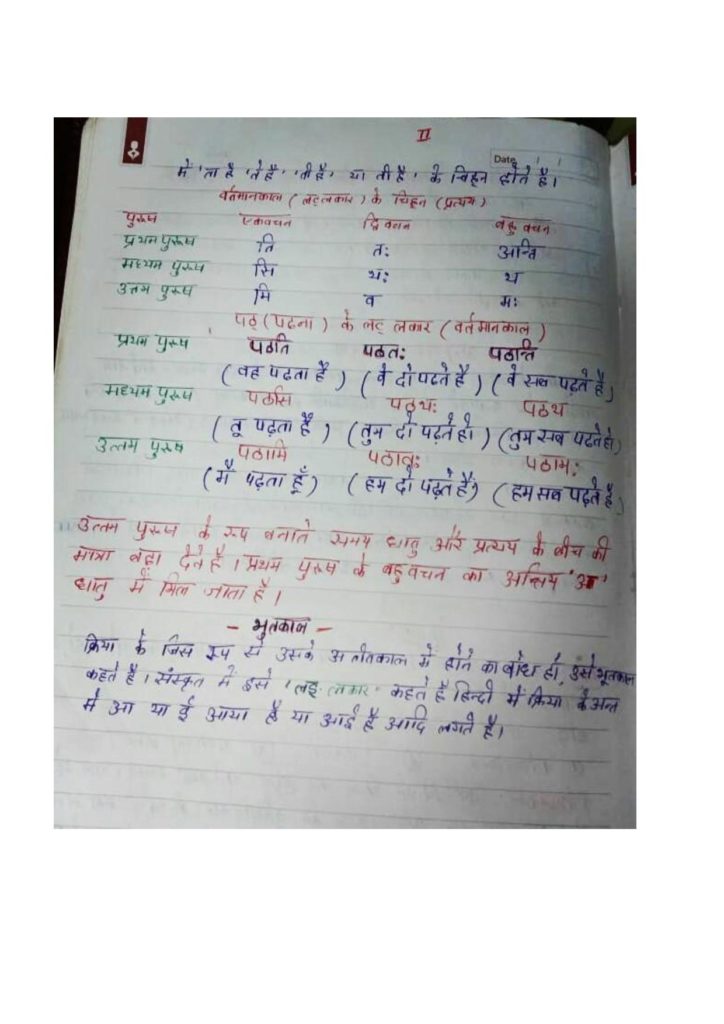 II
Date
में 'ता है 'ते है' 'ती है' या ती है' के चिह्न होते है।
वर्तमानकाल (लट् लकार) के चिह्न (प्रत्यय)
पुरुष एकवचन द्विवचन बहुवचन
प्रथम पुरुष ति तः अन्ति
मध्यम पुरुष सि थः थ
उत्तम पुरुष मि व मः
पठ् (पढना) के लट् लकार (वर्तमानकाल)
प्रथम पुरुष पठति पठतः पठन्ति
(वह पढता है) (वे दो पढते है) (वे सब पढ़ते है)
मध्यम पुरुष पठसि पठथः पठथ
(तू पढ़ता है) (तुम दो पढ़ते हो) (तुम सब पढते हो)
उत्तम पुरुष पठामि पठावः पठामः
(मैं पढ़ता हूँ) (हम दो पढ़ते है) (हम सब पढ़ते है)
उत्तम पुरुष के रूप बनाते समय धातु और प्रत्यय के बीच की
मात्रा बढ़ा देते है। प्रथम पुरुष के बहुवचन का अन्तिम 'अ'
धातु में मिल जाता है।
- भुतकाल -
क्रिया के जिस रूप से उसके अतीतकाल में होने का बोध हो, उसे भूतकाल
कहते है। संस्कृत में इसे 'लङ् लकार' कहते है हिन्दी में क्रिया के अन्त
में आ या ई आया है या आई है आदि लगते है।